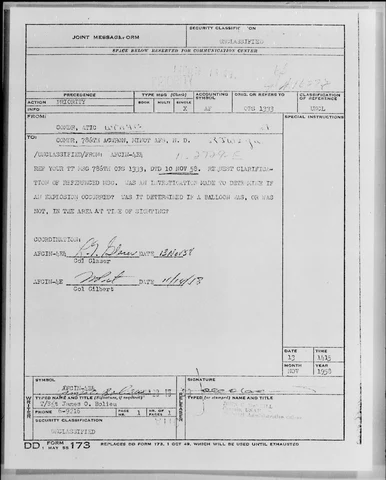 JOINT MESSAGEFORM
SECURITY CLASSIFICATION
UNCLASSIFIED
SPACE BELOW RESERVED FOR COMMUNICATION CENTER
PRECEDENCE
TYPE MSG (Check)
ACCOUNTING SYMBOL
ORIG. OR REFERS TO
CLASSIFICATION OF REFERENCE
ACTION PRIORITY
BOOK MULTI SINGLE
INFO
X AF
UNCL
FROM:
SPECIAL INSTRUCTIONS
COMDR, ATIC
TO:
/UNCLASSIFIED/FROM: AFCIN-4E4
REF YOUR TT MSG 786TH OPS 1393, DTD 10 NOV 58. REQUEST CLARIFICA-
TION OF REFERENCED MSG. WAS AN INVESTIGATION MADE TO DETERMINE IF
AN EXPLOSION OCCURRED? WAS IT DETERMINED IF A BALLOON WAS, OR WAS
NOT, IN THE AREA AT TIME OF SIGHTING?
COORDINATION:
AFCIN-4E4 DATE 12 Nov 58
Col Glaser
AFCIN-4E DATE
Col Gilbert
DATE TIME
13 1415
MONTH YEAR
NOV 1958
SYMBOL
AFCIN-4E4
SIGNATURE
TYPED NAME AND TITLE (Signature, if required)
TYPED (or stamped) NAME AND TITLE
PHONE 6-9216
PAGE NR. 1
NR. OF PAGES 1
SECURITY CLASSIFICATION
UNCLASSIFIED
DD FORM 1 MAY 55 173 REPLACES DD FORM 173, 1 OCT 49, WHICH WILL BE USED UNTIL EXHAUSTED